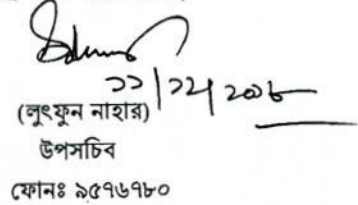 ১১/১২/২০১৮
(লুৎফুন নাহার)
উপসচিব
ফোনঃ ৯৫৭৬৭৮০